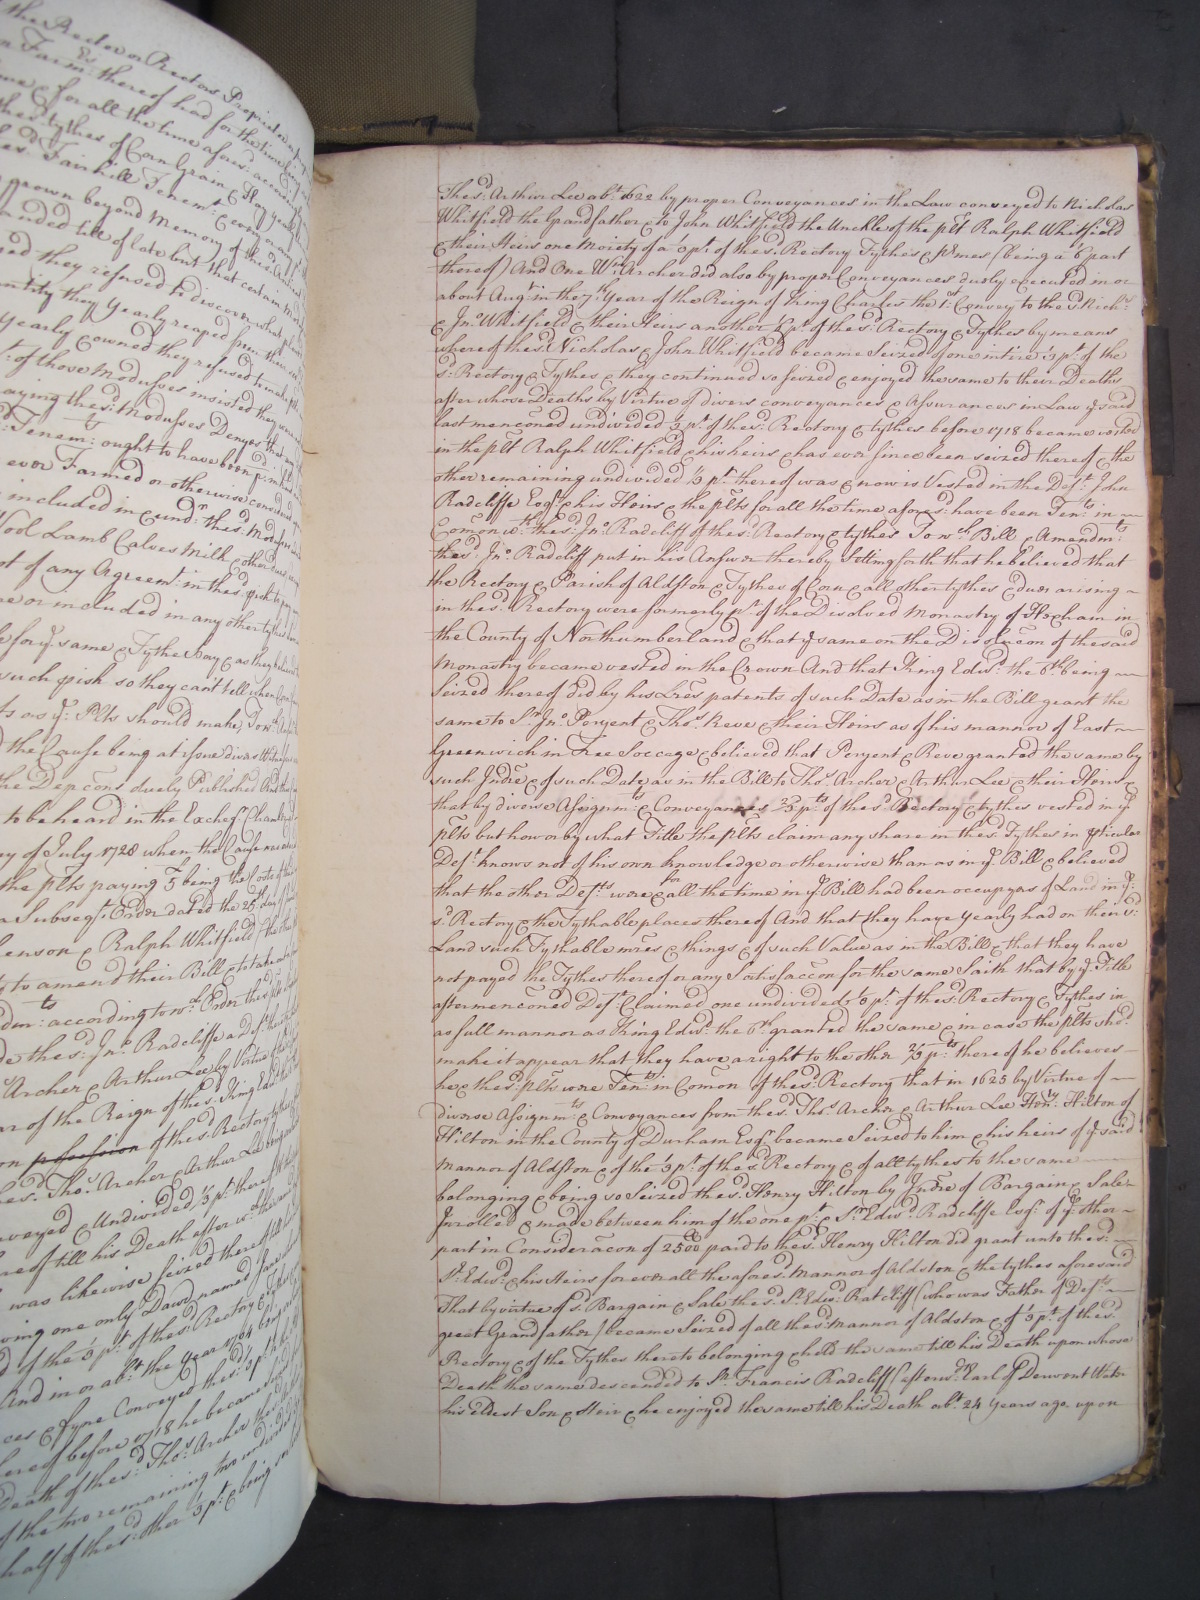 the Rector or Rectors Proprietor
Farm: thereof had for the time being
& for all the time afores:
tythes of Corn Grain & Hay
Fairhill Tenem:t
grown beyond Memory of
till of late but that certain
they refused to discover what
they Yearly reaped from
Yearly owned they refused to make
of those Modusses insisted they were
paying the s:d Modusses Denyes that
Tenem:ts ought to have been
ever Farmed or otherwise
included in & und:r the s:d Modusses
Wool Lamb Calves Milk & other
of any Agreem:t in the s:d
or included in any other tythes
for y:e same & Tythe Hay & as they
such pish so they can't tell when
as y:e Plts should make, To w:ch
the Cause being at issue divers
the Depcons duely Published
to be heard in the Excheq:r Chamber
of July 1728 when the Cause
the plts paying £5 being the Costs of the
a Subseq:t Order dated the 25:th day
& Ralph Whitfield
to amend their Bill &
according to w:ch Order the s:d
the s:d Jn:o Radcliffe a Def:t
Archer & Arthur Lee by Virtue
of the Reign of the s:d King Edw:d
possession of the s:d Rectory
Tho:s Archer & Arthur Lee
& Undivided 1/3 p:t thereof
till his Death after w:ch
was likewise Seized thereof
one only Daur named
of the 1/3 p:t of the s:d Rectory &
And in or ab:t the Year 1704
& Fyne Conveyed the s:d 1/3 p:t
thereof before 1718 he became
Death of the s:d Tho:s Archer
of the two remaining two undivided
half of the s:d other 1/3 p:t & being
The s:d Arthur Lee ab:t 1622 by proper Conveyances in the Law conveyed to Nicholas
Whitfield the Grandfather & to John Whitfield the Unckle of the plt Ralph Whitfield
& their Heirs one Moiety of a 1/3 p:t of the s:d Rectory Tythes & p̄mes (being a 1/6 part
thereof) And One W:m Archer did also by proper Conveyances duely executed in or
about Aug:t in the 7:th Year of the Reign of King Charles the 1:st Convey to the s:d Nich:s
& Jn:o Whitfield & their Heirs another 1/6 p:t of the s:d Rectory & Tythes by means
whereof the s:d Nicholas & John Whitfield became Seized of one intire 1/3 p:t of the
s:d Rectory & Tythes & they continued so seized & enjoyed the same to their Deaths
after whose Deaths by Virtue of divers conveyances & Assurances in Law y:e said
last menconed undivided 1/3 p:t of the s:d Rectory & tythes before 1718 became vested
in the plt Ralph Whitfield & his heirs & has ever since been seized thereof & the
other remaining undivided 1/3 p:t thereof was & now is Vested in the Def:t John
Radcliffe Esq:r & his Heirs & the plts for all the time afores:d have been Ten:ts in
Com̄on w:th the s:d Jn:o Radcliff of the s:d Rectory & tythes To w:ch Bill & Amendm:ts
the s:d Jn:o Radcliff put in his Answer thereby Setting forth that he believed that
the Rectory & Parish of Aldston & Tythes of Corn & all other tythes & dues arising
in the s:d Rectory were formerly p:t of the Disolved Monastry of Hexham in
the County of Northumberland & that y:e same on the Disolucon of the said
Monastry became vested in the Crown And that King Edw:d the 6:th being
Seized thereof did by his Lr̄es patents of such Date as in the Bill grant the
same to S:r Jn:o Peryent & Tho:s Reve & their Heirs as of his mannor of East
Greenwich in Free Soccage & believed that Peryent & Reve granted the same by
such Indr̄e & of such Date as in the Bill to Tho:s Archer & Arthur Lee & their Heirs &
that by divers Assignm:ts & Conveyances 2/3 p:ts of the s:d Rectory & tythes vested in y:e
plts but how or by what Title the plts claim any share in the s:d Tythes in p̄ticular
Def:t knows not of his own knowledge or otherwise than as in y:e Bill & believed
that the other Def:ts were & for all the time in y:e Bill had been occupyers of Land in y:e
s:d Rectory & the Tythable places thereof And that they have yearly had on their s:d
Land such Tythable mr̄es & things & of such Value as in the Bill & that they have
not payed the Tythes thereof or any Satisfaccon for the same Saith that by y:e Title
aftermenconed Def:t Claimed one undivided 1/3 p:t of the s:d Rectory & Tythes in
as full mannor as King Edw:d the 6:th granted the same & in case the plts sho:d
make it appear that they have a right to the other 2/3 p:ts thereof he believes
he & the s:d plts were Ten:ts in Com̄on of the s:d Rectory that in 1625 by Virtue of
diverse Assignm:ts & Conveyances from the s:d Tho:s Archer & Arthur Lee Hen:ry Hilton of
Hilton in the County of Durham Esq:r became Seized to him & his heirs of y:e said
Mannor of Aldston & of the 1/3 p:t of the s:d Rectory & of all tythes to the same
belonging & being so Seized the s:d Henry Hilton by Indr̄e of Bargain & Sale
Inrolled & made between him of the one p:t & S:r Edw:d Radcliffe Esq:r of y:e other
part in Consideracon of 2500 paid to the s:d Henry Hilton did grant unto the s:d
S:r Edw:d & his Heirs for ever all the afores:d Mannor of Aldston & the tythes aforesaid
That by virtue of s:d Bargain & Sale the s:d S:r Edw:d Ratcliff (who was Father of Def:ts
great Grandfather) became Seized of all the s:d Mannor of Aldston & of 1/3 p:t of the s:d
Rectory & of the Tythes thereto belonging & held the same till his Death upon whose
Death the same descended to S:r Francis Radcliff (afterw:ds Earl of Derwent Water
his eldest Son & Heir & he enjoyed the same till his Death ab:t 24 Years ago upon